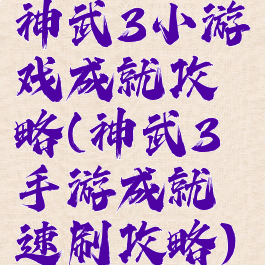 神武3小游
戏成就攻
略(神武3
手游成就
速刷攻略)